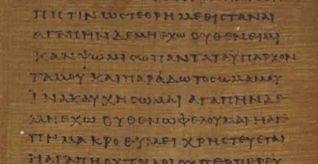 ΠΙΣΤΙΝΩΣΤΕΟΡΗΜΕΘΙΣΤΑΝΑΙ
ΑΓΑΠΗΝΔΕΜΗΕΧΩΟΥΘΕΝΕΙΜΙ
ΚΑΝΨΩΜΙΣΩΠΑΝΤΑΤΑΥΠΑΡΧΟΝ
ΤΑΜΟΥΚΑΙΠΑΡΑΔΩΤΟΣΩΜΑΜΟΥ
ΙΝΑΚΑΥΧΗΣΩΜΑΙΑΓΑΠΗΝΔΕ
ΜΗΕΧΩΟΥΘΕΝΩΦΕΛΟΥΜΑΙΗΑΓΑ
ΠΗΜΑΚΡΟΘΥΜΕΙΧΡΗΣΤΕΥΕΤΑΙ